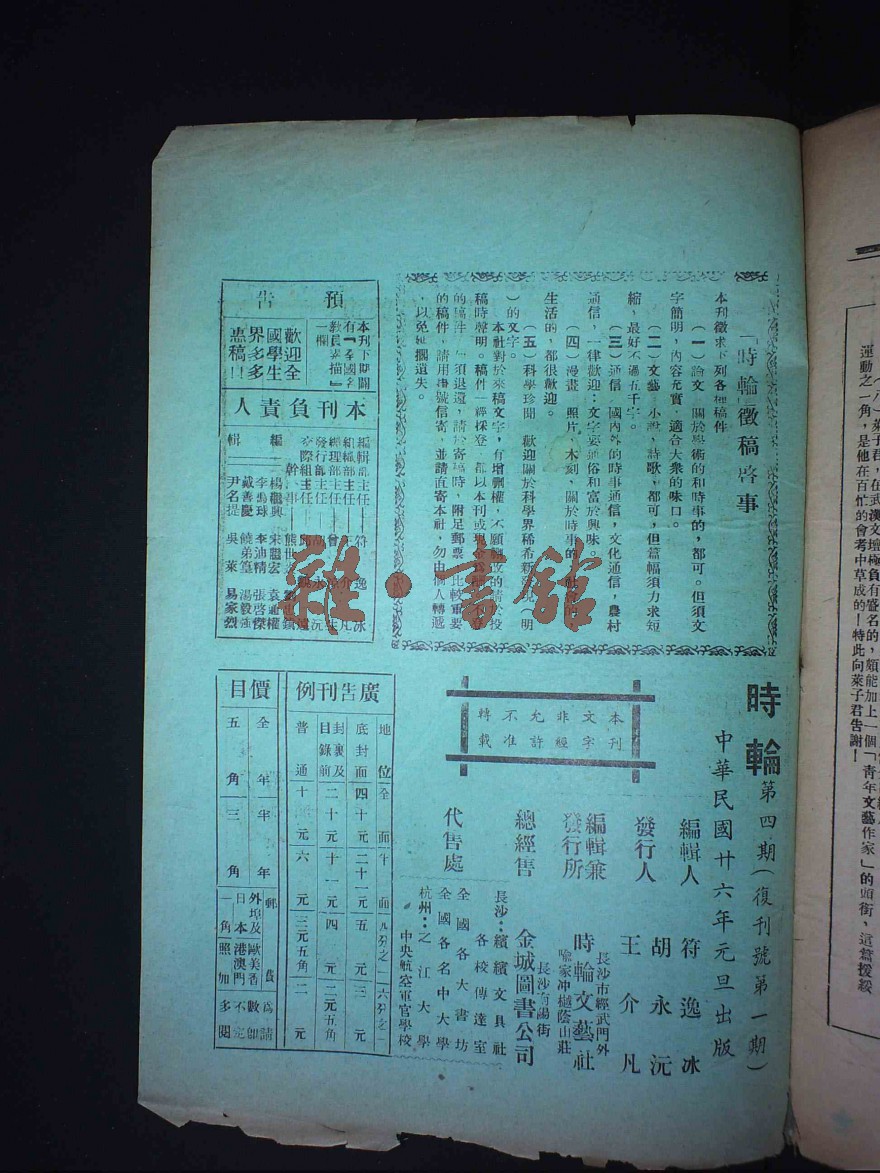 「時輪」徵稿啓事
本刊徵求下列各種稿件
（一）論文　關於學術的和時事的，都可。但須文
字簡明，內容充實，適合大衆的味口。
（二）文藝　小說，詩歌，都可，但篇幅須力求短
縮，最好不過五千字。
（三）通信　國內外的時事通信，文化通信，農村
通信，一律歡迎；文字要通俗和富於興味。
（四）漫畫　照片，木刻，關於時事的
生活的，都很歡迎。
（五）科學珍聞　歡迎關於科學界稀希新
）的文字。
本社對於來稿文字，有增刪權，不願
稿時聲明。稿件一經採登，都以本刊或現金
的稿件，須退還，請於寄稿時，附足郵票，比較重要
的稿件，請用掛號信寄，並請直寄本社，勿由個人轉遞
，以免延擱遺失。
預告
本刊下期開
有「全國名
教員素描」
一欄
歡迎全
國學生
界多多
惠稿!!
本刊負責人
編輯部主任　符逸冰
組織部主任
經理部主任
發行部主任　胡永沅
交際組主任
幹事　熊世
編輯
楊繼興　宋繼宏　袁通權
李鳴球　李迪精　張啓傑
戴善慶　饒弟篁　湯毅強
尹名提　吳萊　易家烈
時輪　第四期（復刊號第一期）
中華民國廿六年元旦出版
編輯人　符逸冰
胡永沅
發行人　王介凡
編輯兼
發行所
長沙市經武門外
喩家冲樾蔭山莊
時輪文藝社
總經售
長沙府陽街
金城圖書公司
代售處
長沙：繽繽文具社
各校傳達室
全國各大書坊
全國各名中大學
杭州：之江大學
中央航空軍官學校
本刊
文字
非經
允許
不准
轉載
廣告刊例
地位　全面　半面　八分之一　六分之一
底封面　四十元　二十一元　五元　三元
封裏及
目錄前　二十元　十一元　四元　二元五角
普通　十元　六元　三元五角　二元
價目
全年　半年　郵費
五角　三角
外埠及歐美香
日本港澳門
一角照加
雜·書館
運動之一角，是他在百忙的會考中草成的！特此向萊子君告謝！
（八）萊子君，在武漢文壇極負有聲名的，頗能加上一個「青年文藝作家」的頭銜，這篇援綏